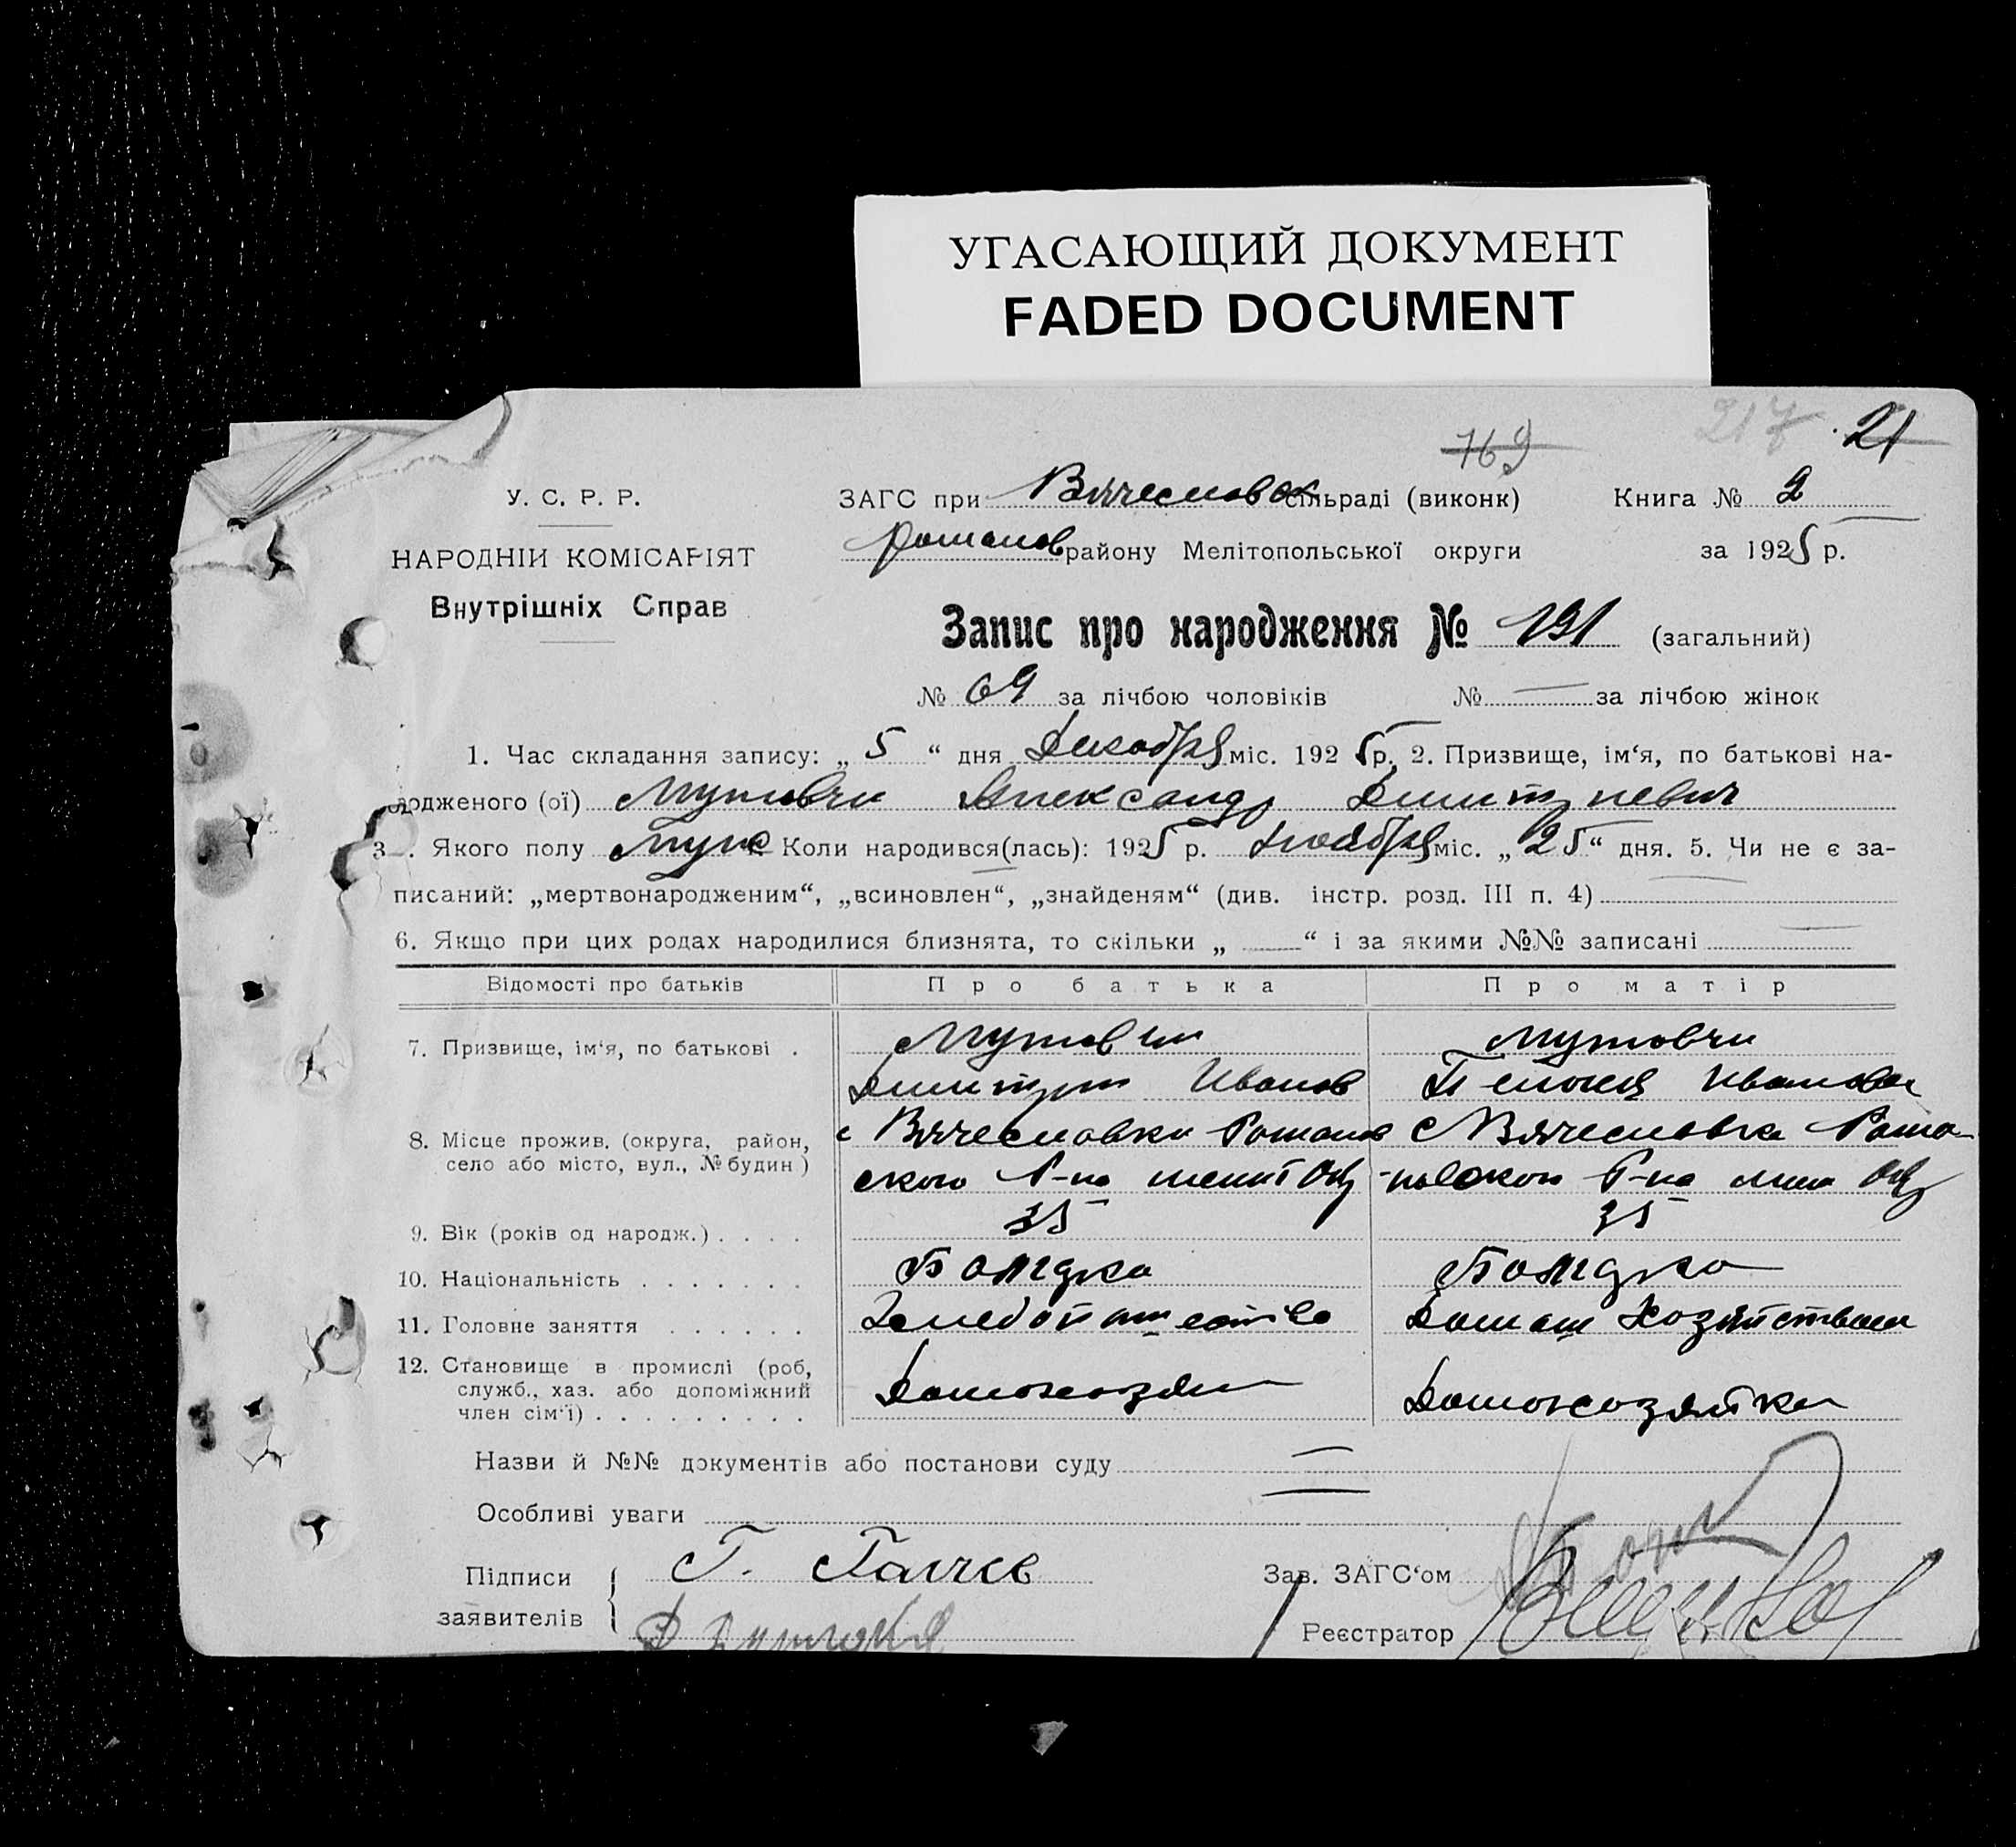 УГАСАЮЩИЙ ДОКУМЕНТ
FADED DOCUMENT
769 217 21
У. С. Р. Р.
НАРОДНІЙ КОМІСАРІЯТ
Внутрішніх Справ
ЗАГС при Вячеславовск сільраді (виконк) Книга № 2
Романов району Мелітопольської округи за 1925 р.
Запис про народження № 131 (загальний)
№ 69 за лічбою чоловіків № — за лічбою жінок
1. Час складання запису: „ 5 “ дня Декабря міс. 1925 р. 2. Призвище, ім‘я, по батькові на-
родженого (ої) Мутовчи Александр Дмитриевич
3. Якого полу муж Коли народився(лась): 1925 р. Ноября міс. „ 25 “ дня. 5. Чи не є за-
писаний: „мертвонародженим“, „всиновлен“, „знайденям“ (див. інстр. розд. III п. 4)
6. Якщо при цих родах народилися близнята, то скільки „ — “ і за якими №№ записані
Відомості про батьків Про батька Про матір
7. Призвище, ім‘я, по батькові . Мутовчи Мутовчи
Дмитрий Иванов Иванова
8. Місце прожив. (округа, район, с Вячеславки Романов с Вячеславка Рома-
село або місто, вул., № будин) ского Р-на мелит Окр -новского Р-на мел Окр
9. Вік (років од народж.) . . . . 35 35
10. Національність . . . . . . . Болгарка
11. Головне заняття . . . . . . Домаш Хозяйством
12. Становище в промислі (роб, Домохозяин Домохозяйка
служб., хаз. або допоміжний
член сім‘ї) . . . . . . . . .
Назви й №№ документів або постанови суду
Особливі уваги
Підписи Г. Галчев Зав. ЗАГС‘ом
заявителів Реєстратор